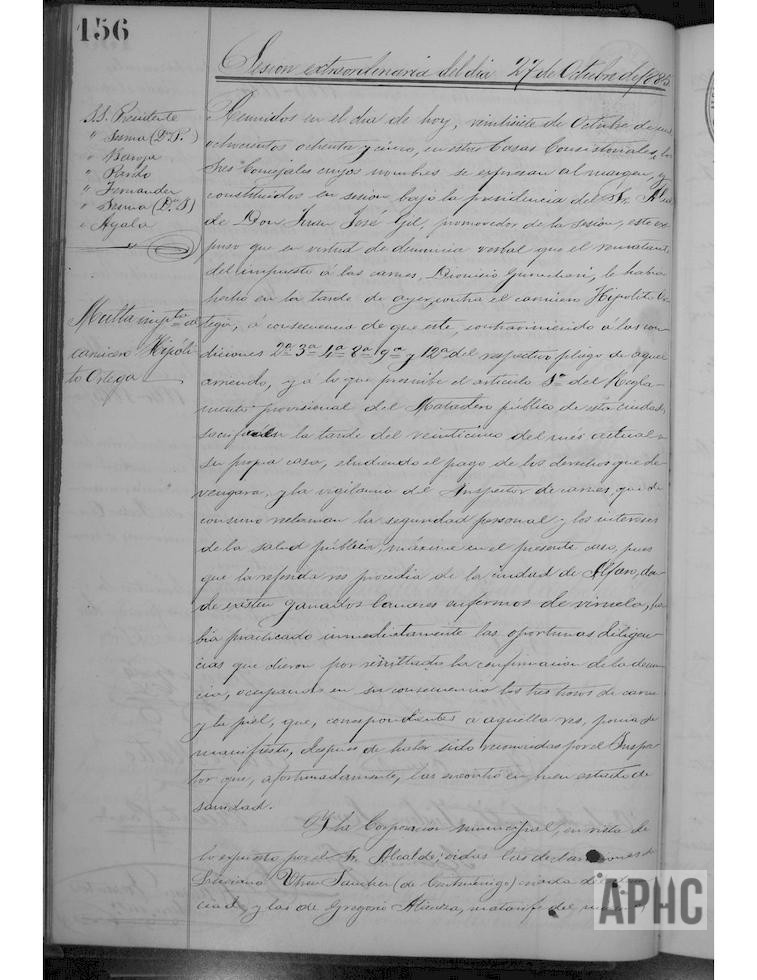 156
Sesion extraordinaria del dia 27 de Octubre de 1885.
SS. Presidente
" Sesma (Dn P.)
" Baroja
" Pardo
" Fernandez
" Sesma (Dn S)
" Ayala
Multa impta al
carnicero Hipóli-
to Ortega
Reunidos en el dia de hoy, veintisiete de Octubre de mil
ochocientos ochenta y cinco, en estas Casas Consistoriales, los
Sres Concejales cuyos nombres se expresan al margen, y
constituidos en sesion bajo la presidencia del Sr. Alcal-
de Don Juan José Gil, promovedor de la sesion, este ex-
puso que en virtud de denuncia verbal que el rematante
del impuesto á las carnes, Dionisio, le habia
hecho en la tarde de ayer, contra el carnicero Hipolito Or-
tega, á consecuencia de que este, contraviniendo á las con-
diciones 2ª 3ª 4ª 8ª 9ª y 12ª del respectivo pliego de aquel
arriendo, y á lo que prescribe el articulo 8º del Regla-
mento provisional del Matadero público de esta ciudad,
en la tarde del veinticinco del més actual en
su propia casa, eludiendo el pago de los derechos que de-
vengara, y la vigilancia del Inspector de carnes, que de
consuno reclaman la seguridad personal y los intereses
de la salud pública, máxime en el presente caso, pues
que la referida res procedia de la ciudad de Alfaro, don-
de existen ganados lanares enfermos de viruela, ha-
bia practicado inmediatamente las oportunas diligen-
cias que dieron por resultado la confirmacion de la denun-
cia, ocupando en su consecuencia los tres trozos de carne
y la piel, que, correspondientes á aquella res, ponia de
manifiesto, despues de haber sido reconocidas por el Inspec-
tor que, afortunadamente, las encontró en buen estado de
sanidad.
Y la Corporacion municipal, en vista de
lo expuesto por el Sr. Alcalde; oidas las declaraciones de
Sanchez (de Cintruénigo) criada del
y las de Gregorio Atienza, matarife del
APHC